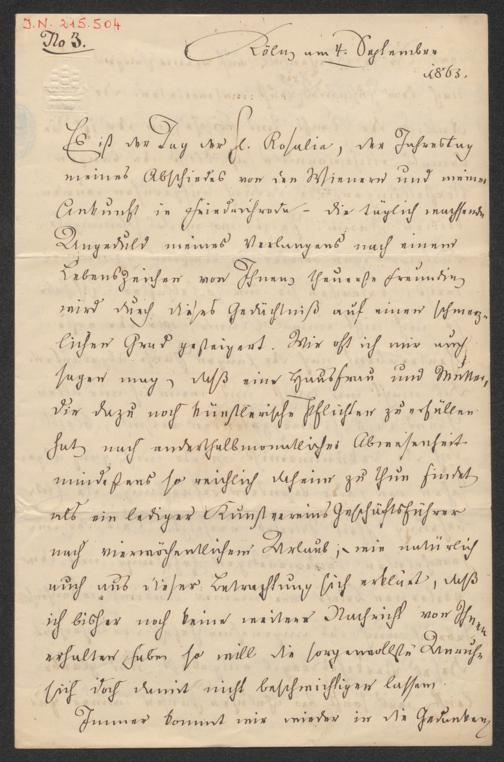 J.N. 215.504
No 3.
Köln am 4. September
1863.
Es ist der Tag der hl. Rosalia, der Jahrestag
meines Abschiedes von den Wienern und meiner
Ankunft in Friedrichroda – die täglich wachsende
Ungeduld meines Verlangens nach einem
Lebenszeichen von Ihnen, theuerste Freundin,
wird durch dieses Gedächtniß auf einen schmerz-
lichen Grad gesteigert. Wie oft ich mir auch
sagen mag, daß eine Hausfrau und Mutter,
die dazu noch künstlerische Pflichten zu erfüllen
hat, nach anderthalbmonatlicher Abwesenheit
mindestens so reichlich daheim zu thun findet,
als ein lediger Kunstvereins Geschäftsführer
nach vierwöchentlichem Urlaub, – wie natürlich
auch aus dieser Betrachtung sich erklärt, daß
ich bisher noch keine weitere Nachricht von Ihnen
erhalten habe, so will die sorgenvollste Unruhe
sich doch damit nicht beschwichtigen lassen.
Immer kommt mir wieder in die Gedanken,